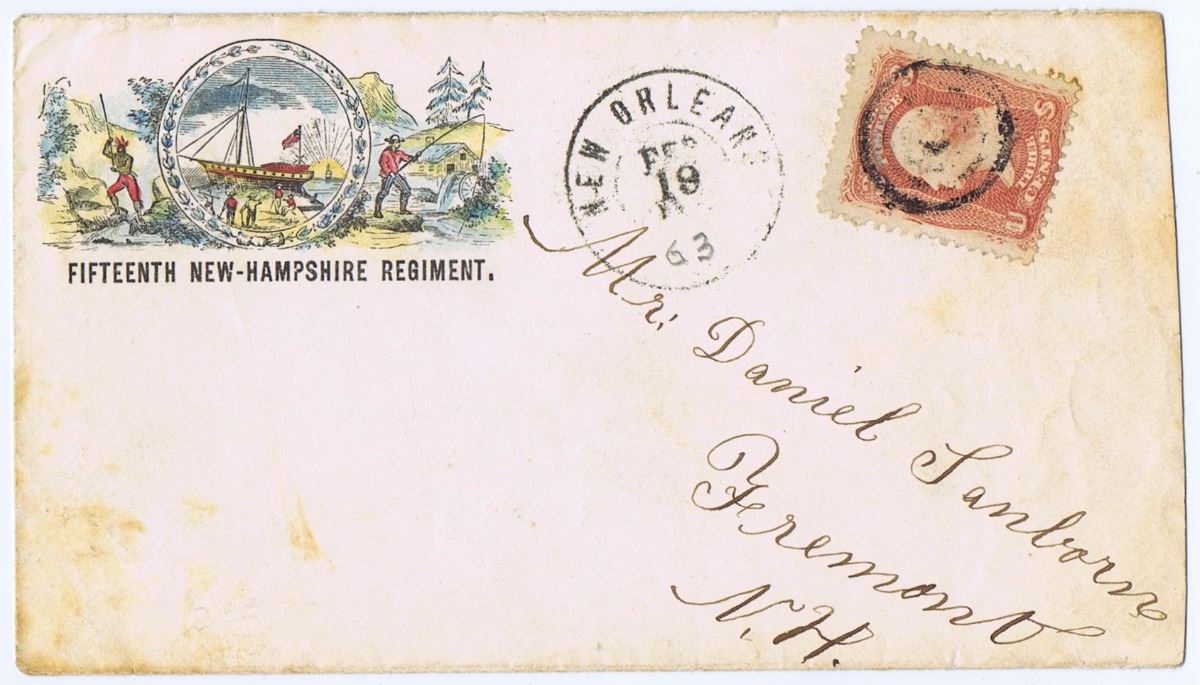 FIFTEENTH NEW-HAMPSHIRE REGIMENT.
NEW ORLEANS
FEB
19
63
Mr. Daniel Sanborn
Fremont
N.H.